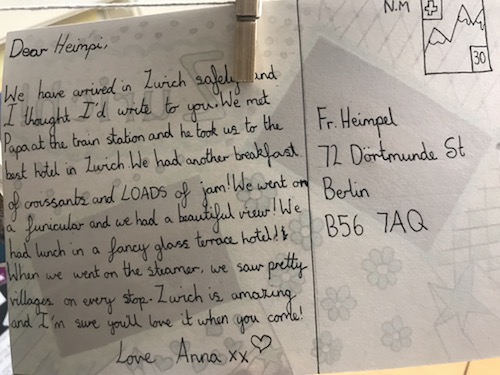 Dear Heimpi,
We have arrived in Zurich safely and
I thought I'd write to you. We met
Papa at the train station and he took us to the
best hotel in Zurich We had another breakfast
of croissants and LOADS of jam! We went on
a funicular and we had a beautiful view! We
had lunch in a fancy glass terrace hotel!
When we went on the steamer, we saw pretty
villages on every stop. Zurich is amazing
and I'm sure you'll love it when you come!
Love Anna xx
N.M
30
Fr. Heimpel
72 Dörtmunde St
Berlin
B56 7AQ